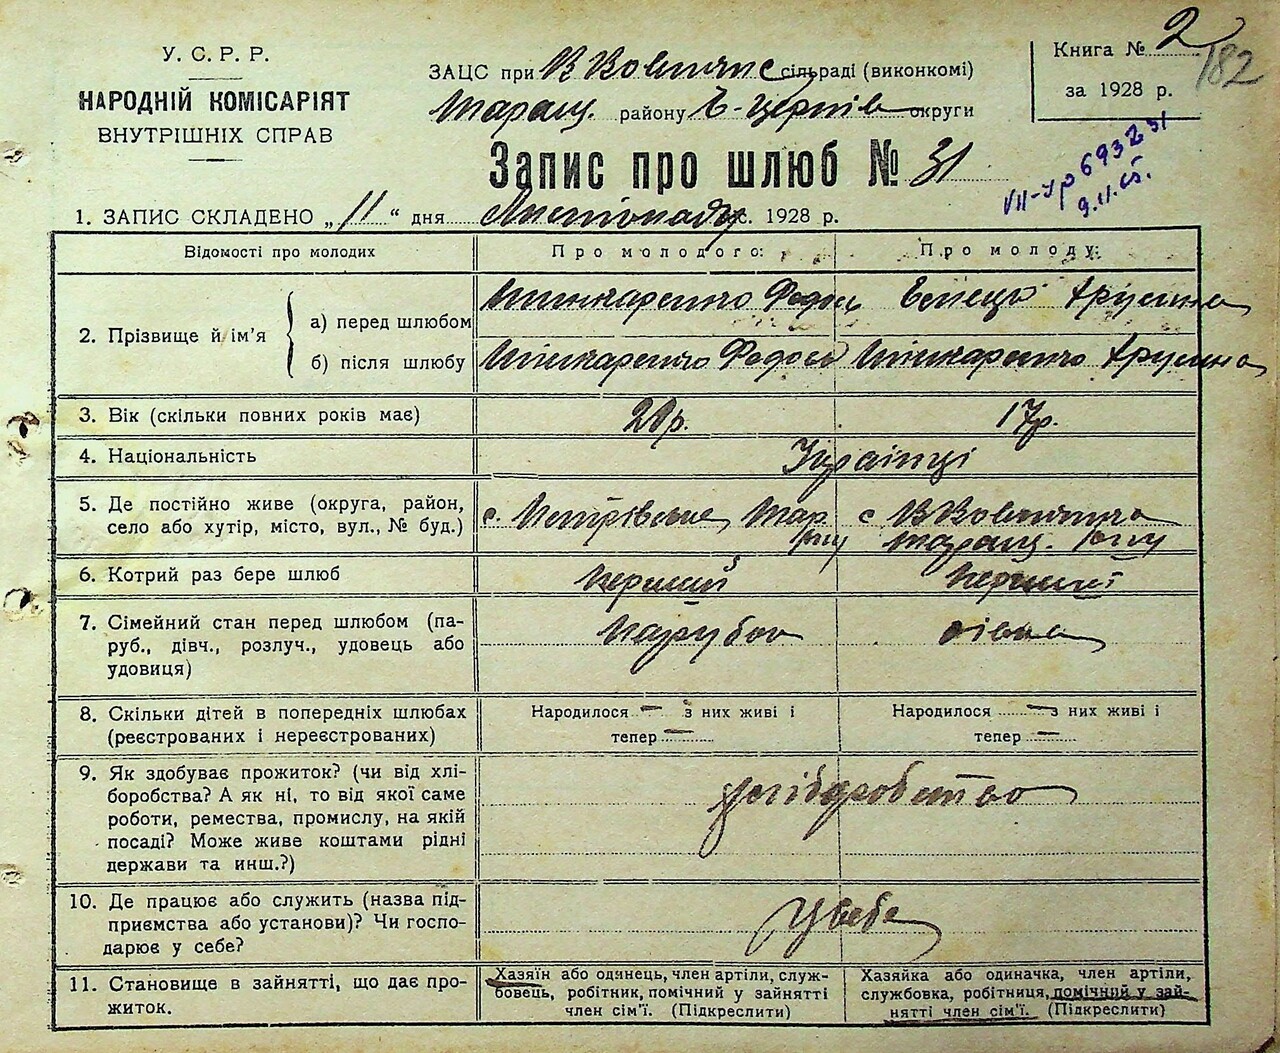 У. С. Р. Р.
НАРОДНІЙ КОМІСАРІЯТ
ВНУТРІШНІХ СПРАВ
ЗАЦС при В Вовнянс сільраді (виконкомі)
Таращ. району Б-Церків округи
Книга № 2
182
за 1928 р.
Запис про шлюб № 31
VII-ур 693231
9.11.65.
1. ЗАПИС СКЛАДЕНО „11“ дня Листопаду с. 1928 р.
Відомості про молодих
Про молодого:
Про молоду:
2. Прізвище й ім'я
а) перед шлюбом
Шинкаренко Федось
б) після шлюбу
Шинкаренко Федось
Шинкаренко
3. Вік (скільки повних років має)
20р.
17р.
4. Національність
Українці
5. Де постійно живе (округа, район, село або хутір, місто, вул., № буд.)
с. Петрівське Тар. р-ну
с В Вовнянка
Таращ. р-ну
6. Котрий раз бере шлюб
Перший
Перший
7. Сімейний стан перед шлюбом (паруб., дівч., розлуч., удовець або удовиця)
Парубок
дівка
8. Скільки дітей в попередніх шлюбах (реєстрованих і нереєстрованих)
Народилося — з них живі і
тепер —
Народилося — з них живі і
тепер —
9. Як здобуває прожиток? (чи від хліборобства? А як ні, то від якої саме роботи, ремества, промислу, на якій посаді? Може живе коштами рідні держави та инш.?)
хлібробство
10. Де працює або служить (назва підприємства або установи)? Чи господарює у себе?
У себе
11. Становище в зайнятті, що дає прожиток.
Хазяїн або одинець, член артіли, службовець, робітник, помічний у зайнятті член сім'ї. (Підкреслити)
Хазяйка або одиначка, член артіли, службовка, робітниця, помічний у зайнятті член сім'ї. (Підкреслити)